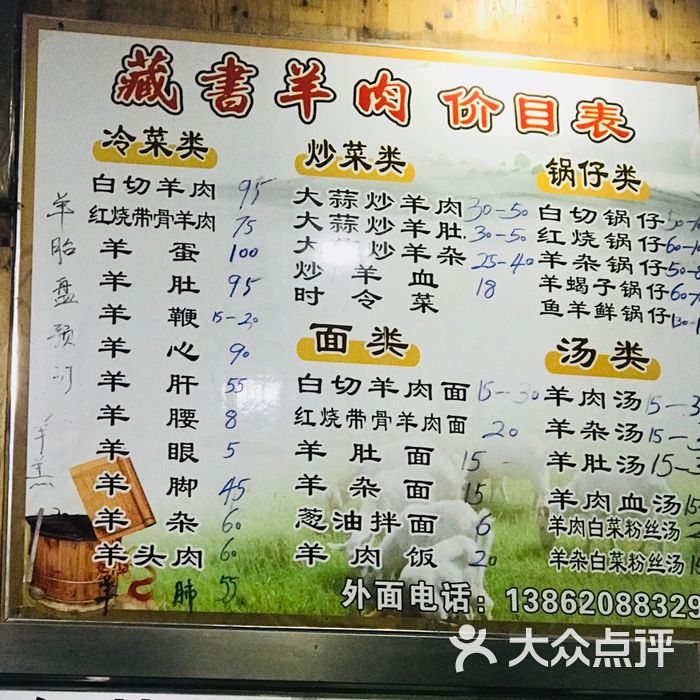 藏書羊肉 价目表
冷菜类
白切羊肉 95
红烧带骨羊肉 75
羊蛋 100
羊肚 95
羊鞭 15-20
羊心 90
羊肝 55
羊腰 8
羊眼 5
羊脚 45
羊杂 60
羊头肉 60
羊肺 55
羊胎盘预订
羊羔
炒菜类
大蒜炒羊肉 30-50
大蒜炒羊肚 30-50
大蒜炒羊杂 25-40
炒羊血 18
时令菜
面类
白切羊肉面 15-30
红烧带骨羊肉面 20
羊肚面 15-
羊杂面 15
葱油拌面 6
羊肉饭 20
锅仔类
白切锅仔
红烧锅仔 60-
羊杂锅仔
羊蝎子锅仔 60-
鱼羊鲜锅仔 130-
汤类
羊肉汤 15-3
羊杂汤 15-
羊肚汤 15-
羊肉血汤 15-
羊肉白菜粉丝汤
羊杂白菜粉丝汤
外面电话：13862088329
大众点评